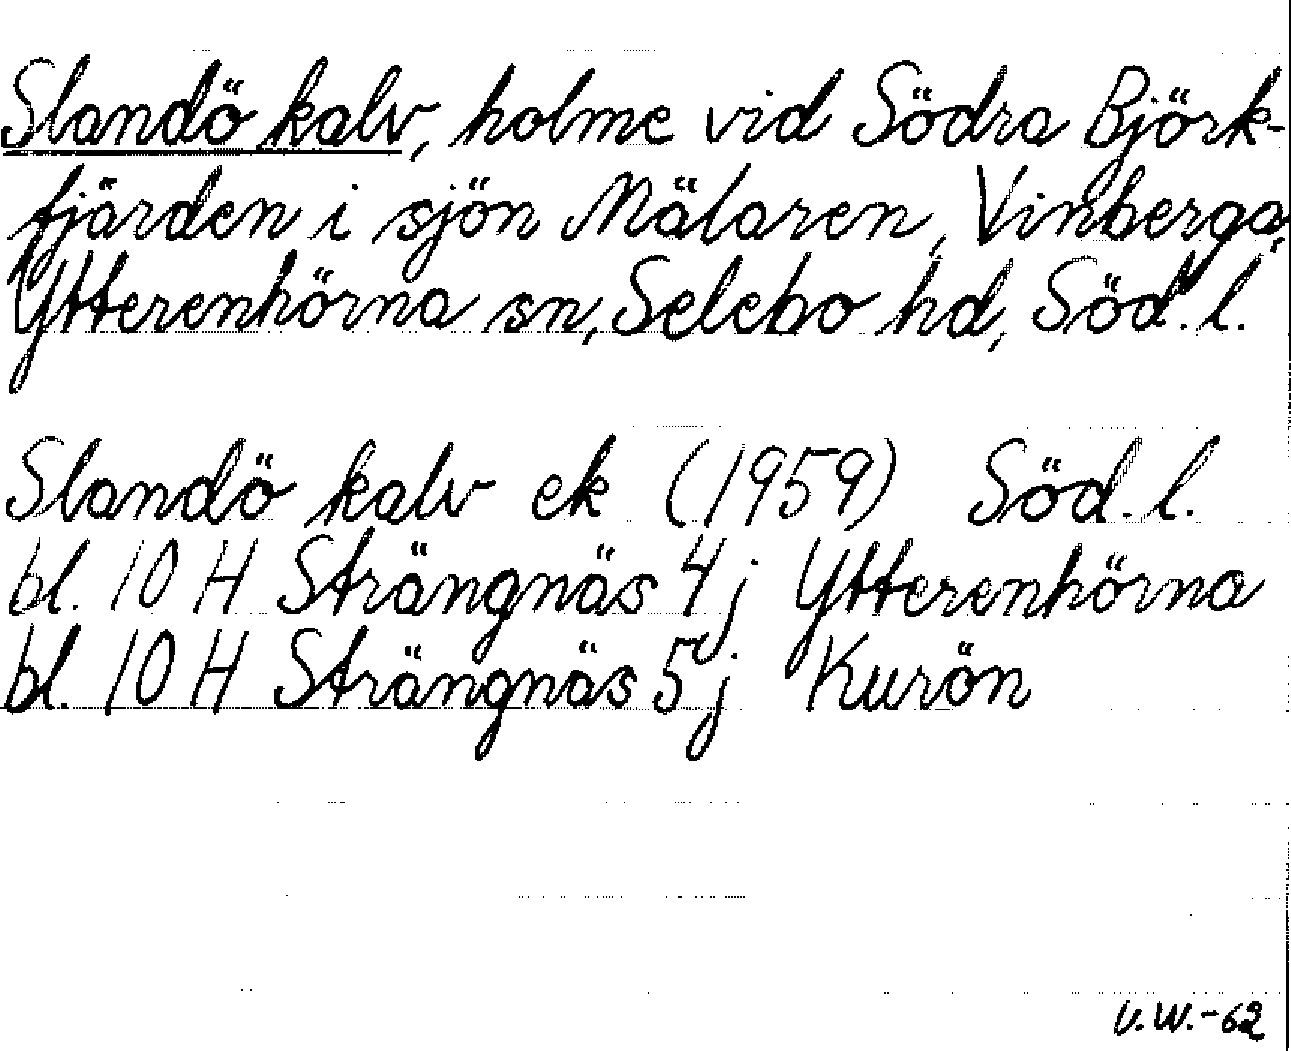 Slandö kalv, holme vid Södra Björk-
fjärden i sjön Mälaren, Vinberga,
Ytterenhörna sn, Selebo hd, Söd. l.
Slandö kalv ek (1959) Söd. l.
bl. 10 H Strängnäs 4 j Ytterenhörna
bl. 10 H Strängnäs 5 j Kurön
V.W.-62